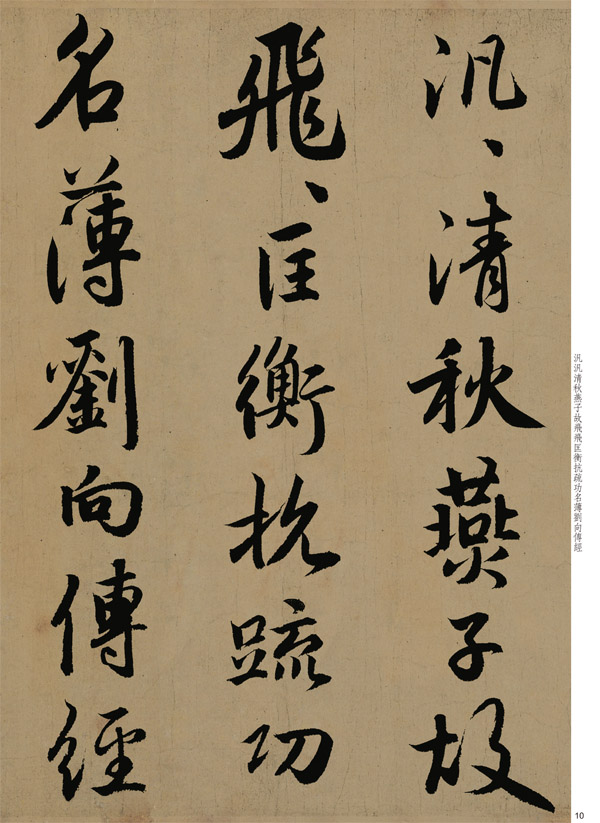 汎、清秋燕子故
飛、匡衡抗疏功
名薄劉向傳經
汎汎清秋燕子故飛飛匡衡抗疏功名薄劉向傳經
10